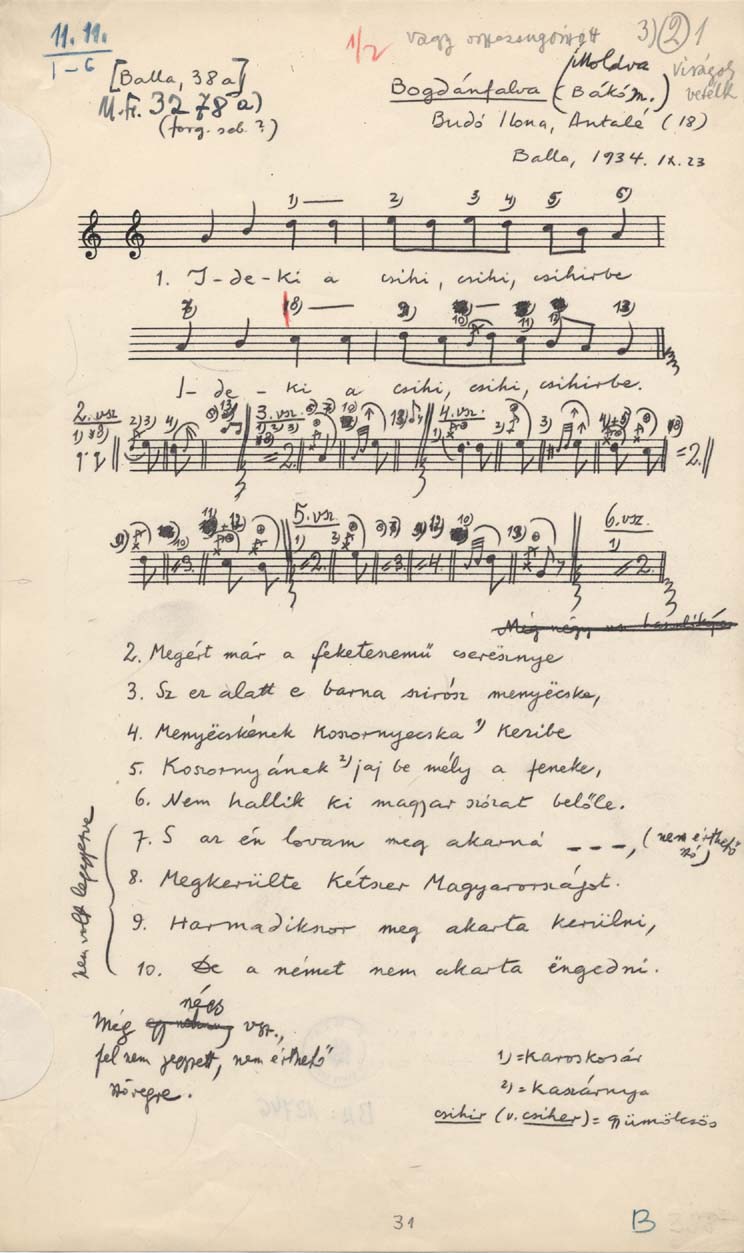 11. 11.
I-6
[Balla, 38a]
M.F. 3278a)
(forg. seb. ?)
1/2 vagy
3) 2 1
Bogdánfalva (Moldva Bákó m.)
Budó Ilona, Antalé (18)
Balla, 1934. IX. 23
1) 2) 3 4) 5) 6)
1. I-de-ki a csihi, csihi, csihirbe
7) 8) 9) 10) 11) 12) 13)
I-de-ki a csihi, csihi, csihirbe.
2. vsz 3. vsz. 4. vsz.
5. vsz 6. vsz.
2. Megért már a feketeszemü cseresznye
3. Sz ez alatt e barna szirósz menyëcske,
4. Menyëcskének koszornyecska 1) kezibe
5. Koszornyának 2) jaj be mély a feneke,
6. Nem hallik ki magyar szózat belőle.
7. S az én lovam meg akarná ---, (nem érthető szó)
8. Megkerülte kétszer Magyarországot.
9. Harmadikszor meg akarta kerülni,
10. De a német nem akarta ëngedni.
nem volt lejegyezve
Még négy vsz.,
fel nem jegyzett, nem érthető
szövegre.
1) = Karoskosár
2) = Kaszárnya
csihir (v. csiher) = gyümölcsös
31
B